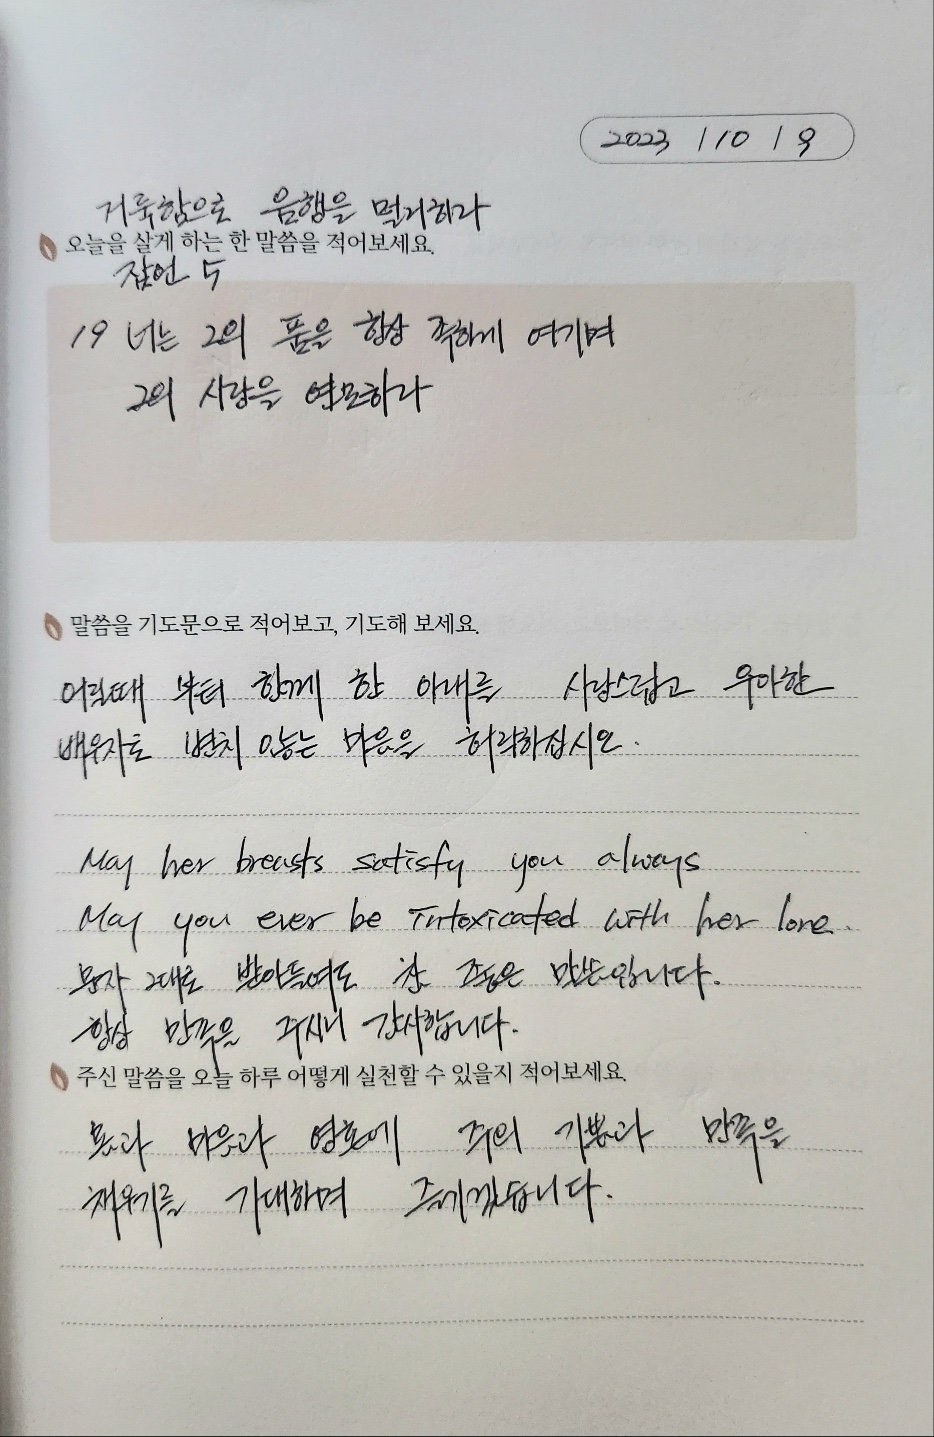 2023 / 10 / 9
거룩함으로 음행을 멀리하라
오늘을 살게 하는 한 말씀을 적어보세요.
잠언 5
19 너는 그의 품을 항상 족하게 여기며
그의 사랑을 연모하라
말씀을 기도문으로 적어보고, 기도해 보세요.
어릴때 부터 함께 한 아내를 사랑스럽고 우아한
배우자로 변치 않는 마음을 허락하십시오.
May her breasts satisfy you always
May you ever be intoxicated with her love.
문자 그대로 받아들여도 참 좋은 말씀입니다.
항상 만족을 주시니 감사합니다.
주신 말씀을 오늘 하루 어떻게 실천할 수 있을지 적어보세요.
몸과 마음과 영혼에 주의 기쁨과 만족을
채우기를 기대하며 즐기겠습니다.